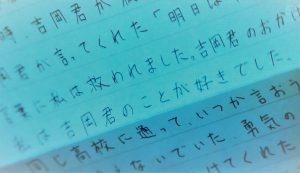 時、吉岡君が
君が言ってくれた「明日は
言葉に私は救われました。吉岡君のおかげ
私は吉岡君のことが好きでした。
同じ高校に通って、いつか言おう
ないでいた。勇気の
けてくれた